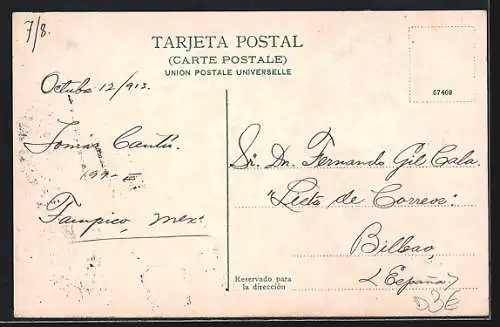 7/8.
TARJETA POSTAL
(CARTE POSTALE)
UNION POSTALE UNIVERSELLE
57469
Octubre 12/913.
Tomás Cantú.
Tampico, Mex.
Sr. Dn. Fernando Gil Cala.
"Lista de Correos".
Bilbao,
(España)
Reservado para
la dirección
D3€